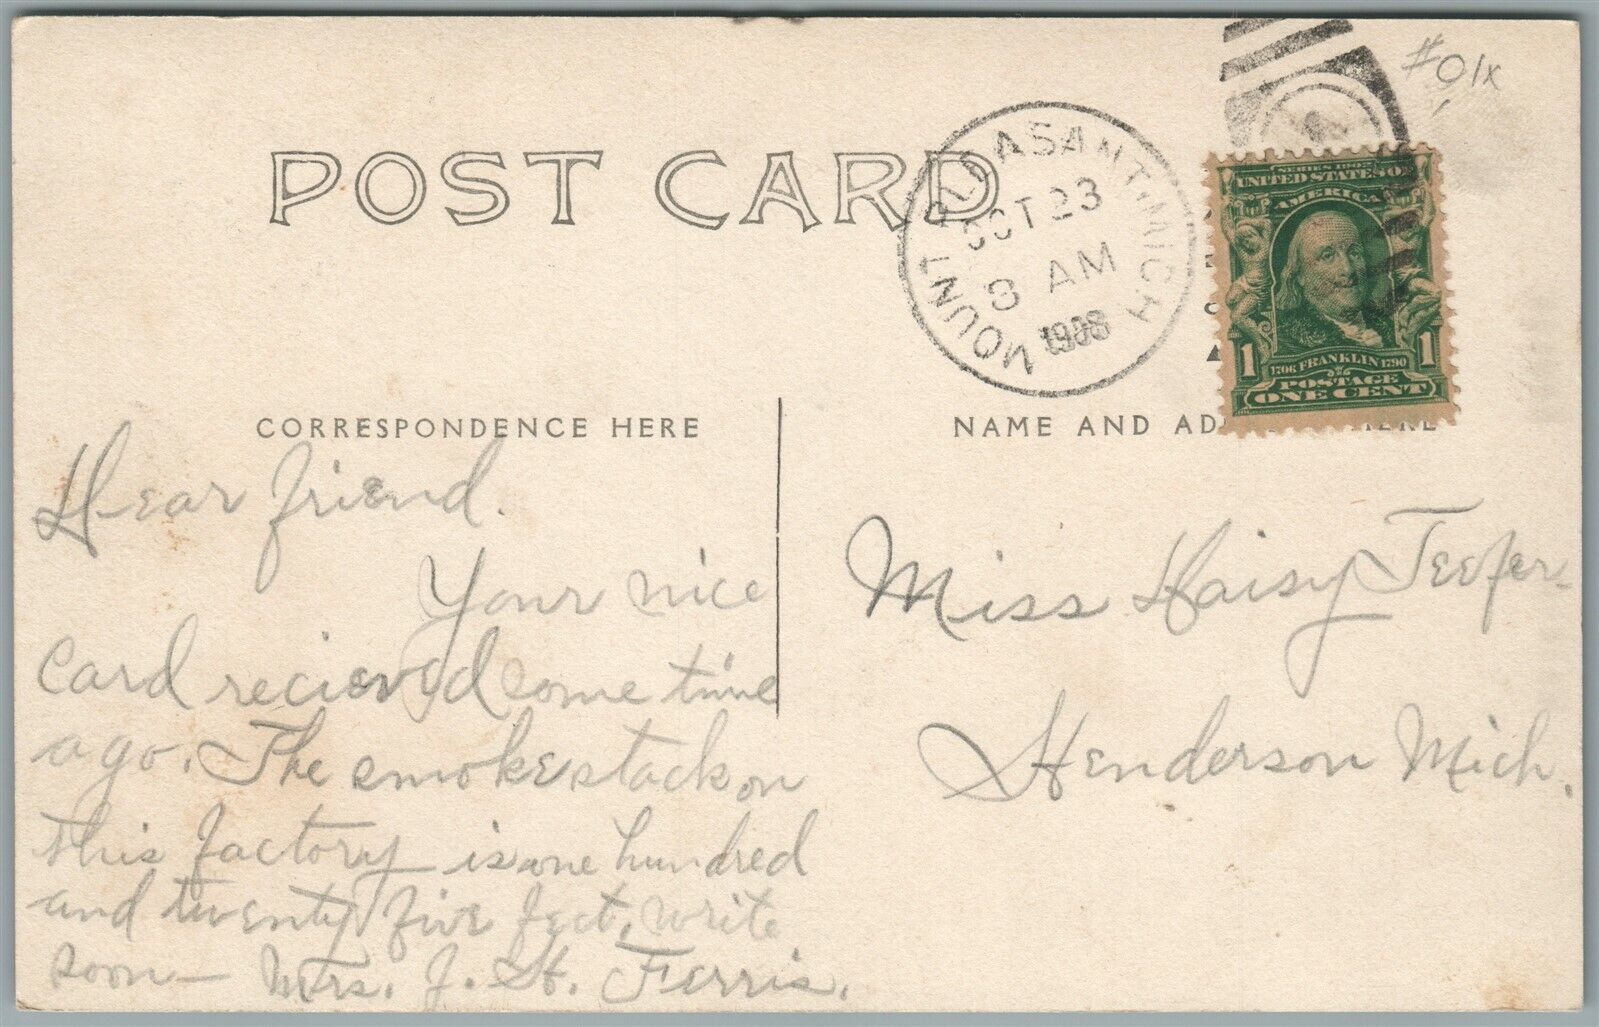 POST CARD
MOUNT PLEASANT, MICH
OCT 23
8 AM
1908
#01x
SERIES 1902
UNITED STATES OF
AMERICA
1 1
1706 FRANKLIN 1790
POSTAGE
ONE CENT
CORRESPONDENCE HERE
NAME AND AD HERE
Dear friend.
Your nice
card recieved some time
ago. The smokestack on
this factory is one hundred
and twenty five feet. write
soon— Mrs. J. St. Ferris.
Miss Daisy Teefer-
Henderson Mich.